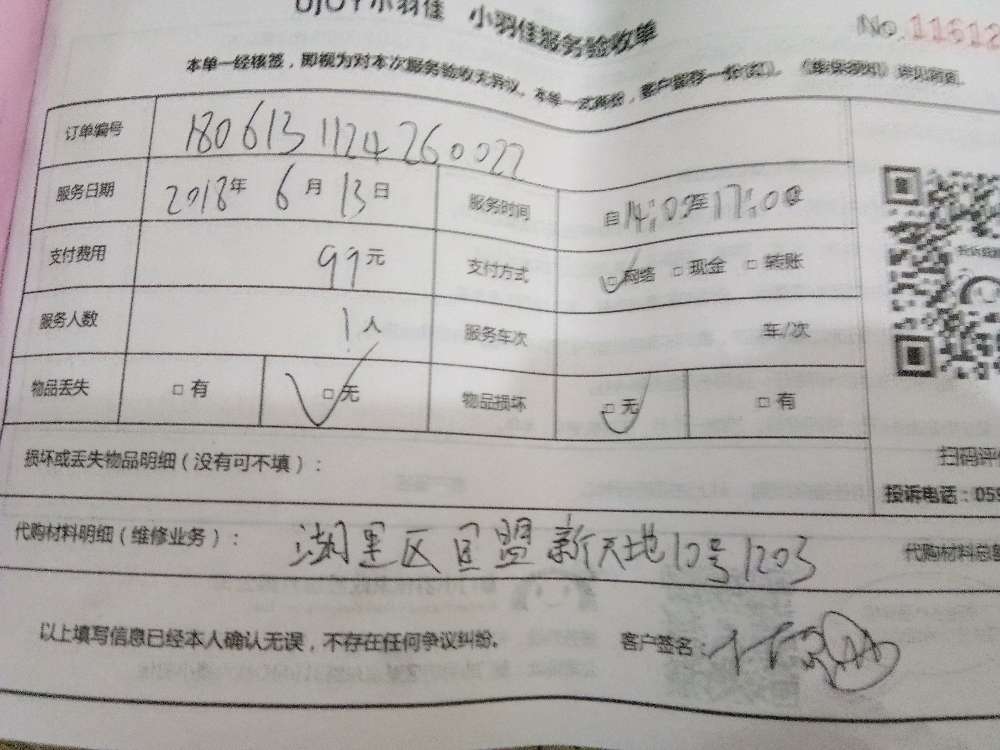 UJOY小羽佳 小羽佳服务验收单
No.11612
本单一经核签，即视为对本次服务验收无异议。本单一式两份，客户留存一份(红)。
订单编号 1806131124260022
服务日期 2018年 6月 13日 服务时间 自14:00至17:00
支付费用 99元 支付方式 □网络 □现金 □转账
服务人数 1人 服务车次 车/次
物品丢失 □有 □无 物品损坏 □无 □有
损坏或丢失物品明细（没有可不填）：
扫码评价
投诉电话：059
代购材料明细（维修业务）： 湖里区 盟新天地10号1203 代购材料总
以上填写信息已经本人确认无误，不存在任何争议纠纷。 客户签名：